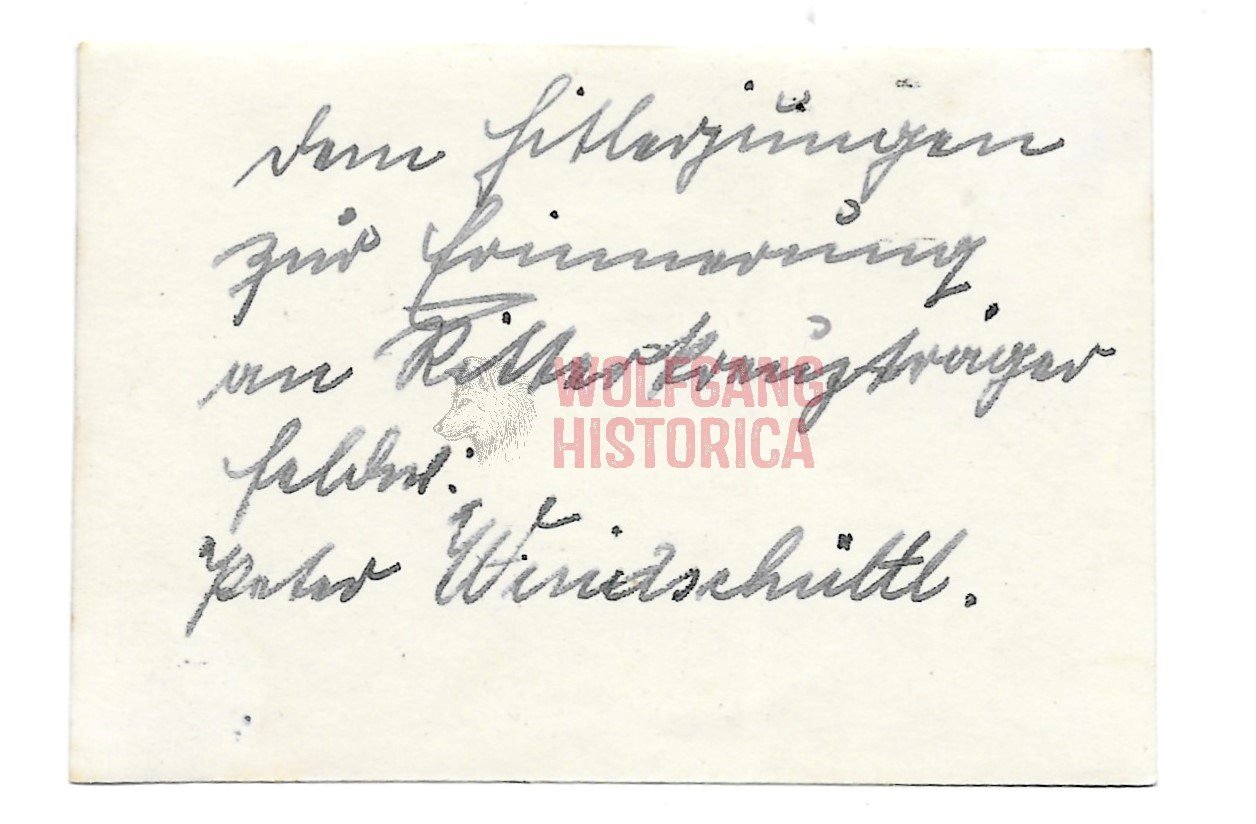 dem Hitlerjungen
zur Erinnerung
an Ritterkreuzträger
Feldw.
Peter Windschüttl.
WOLFGANG
HISTORICA